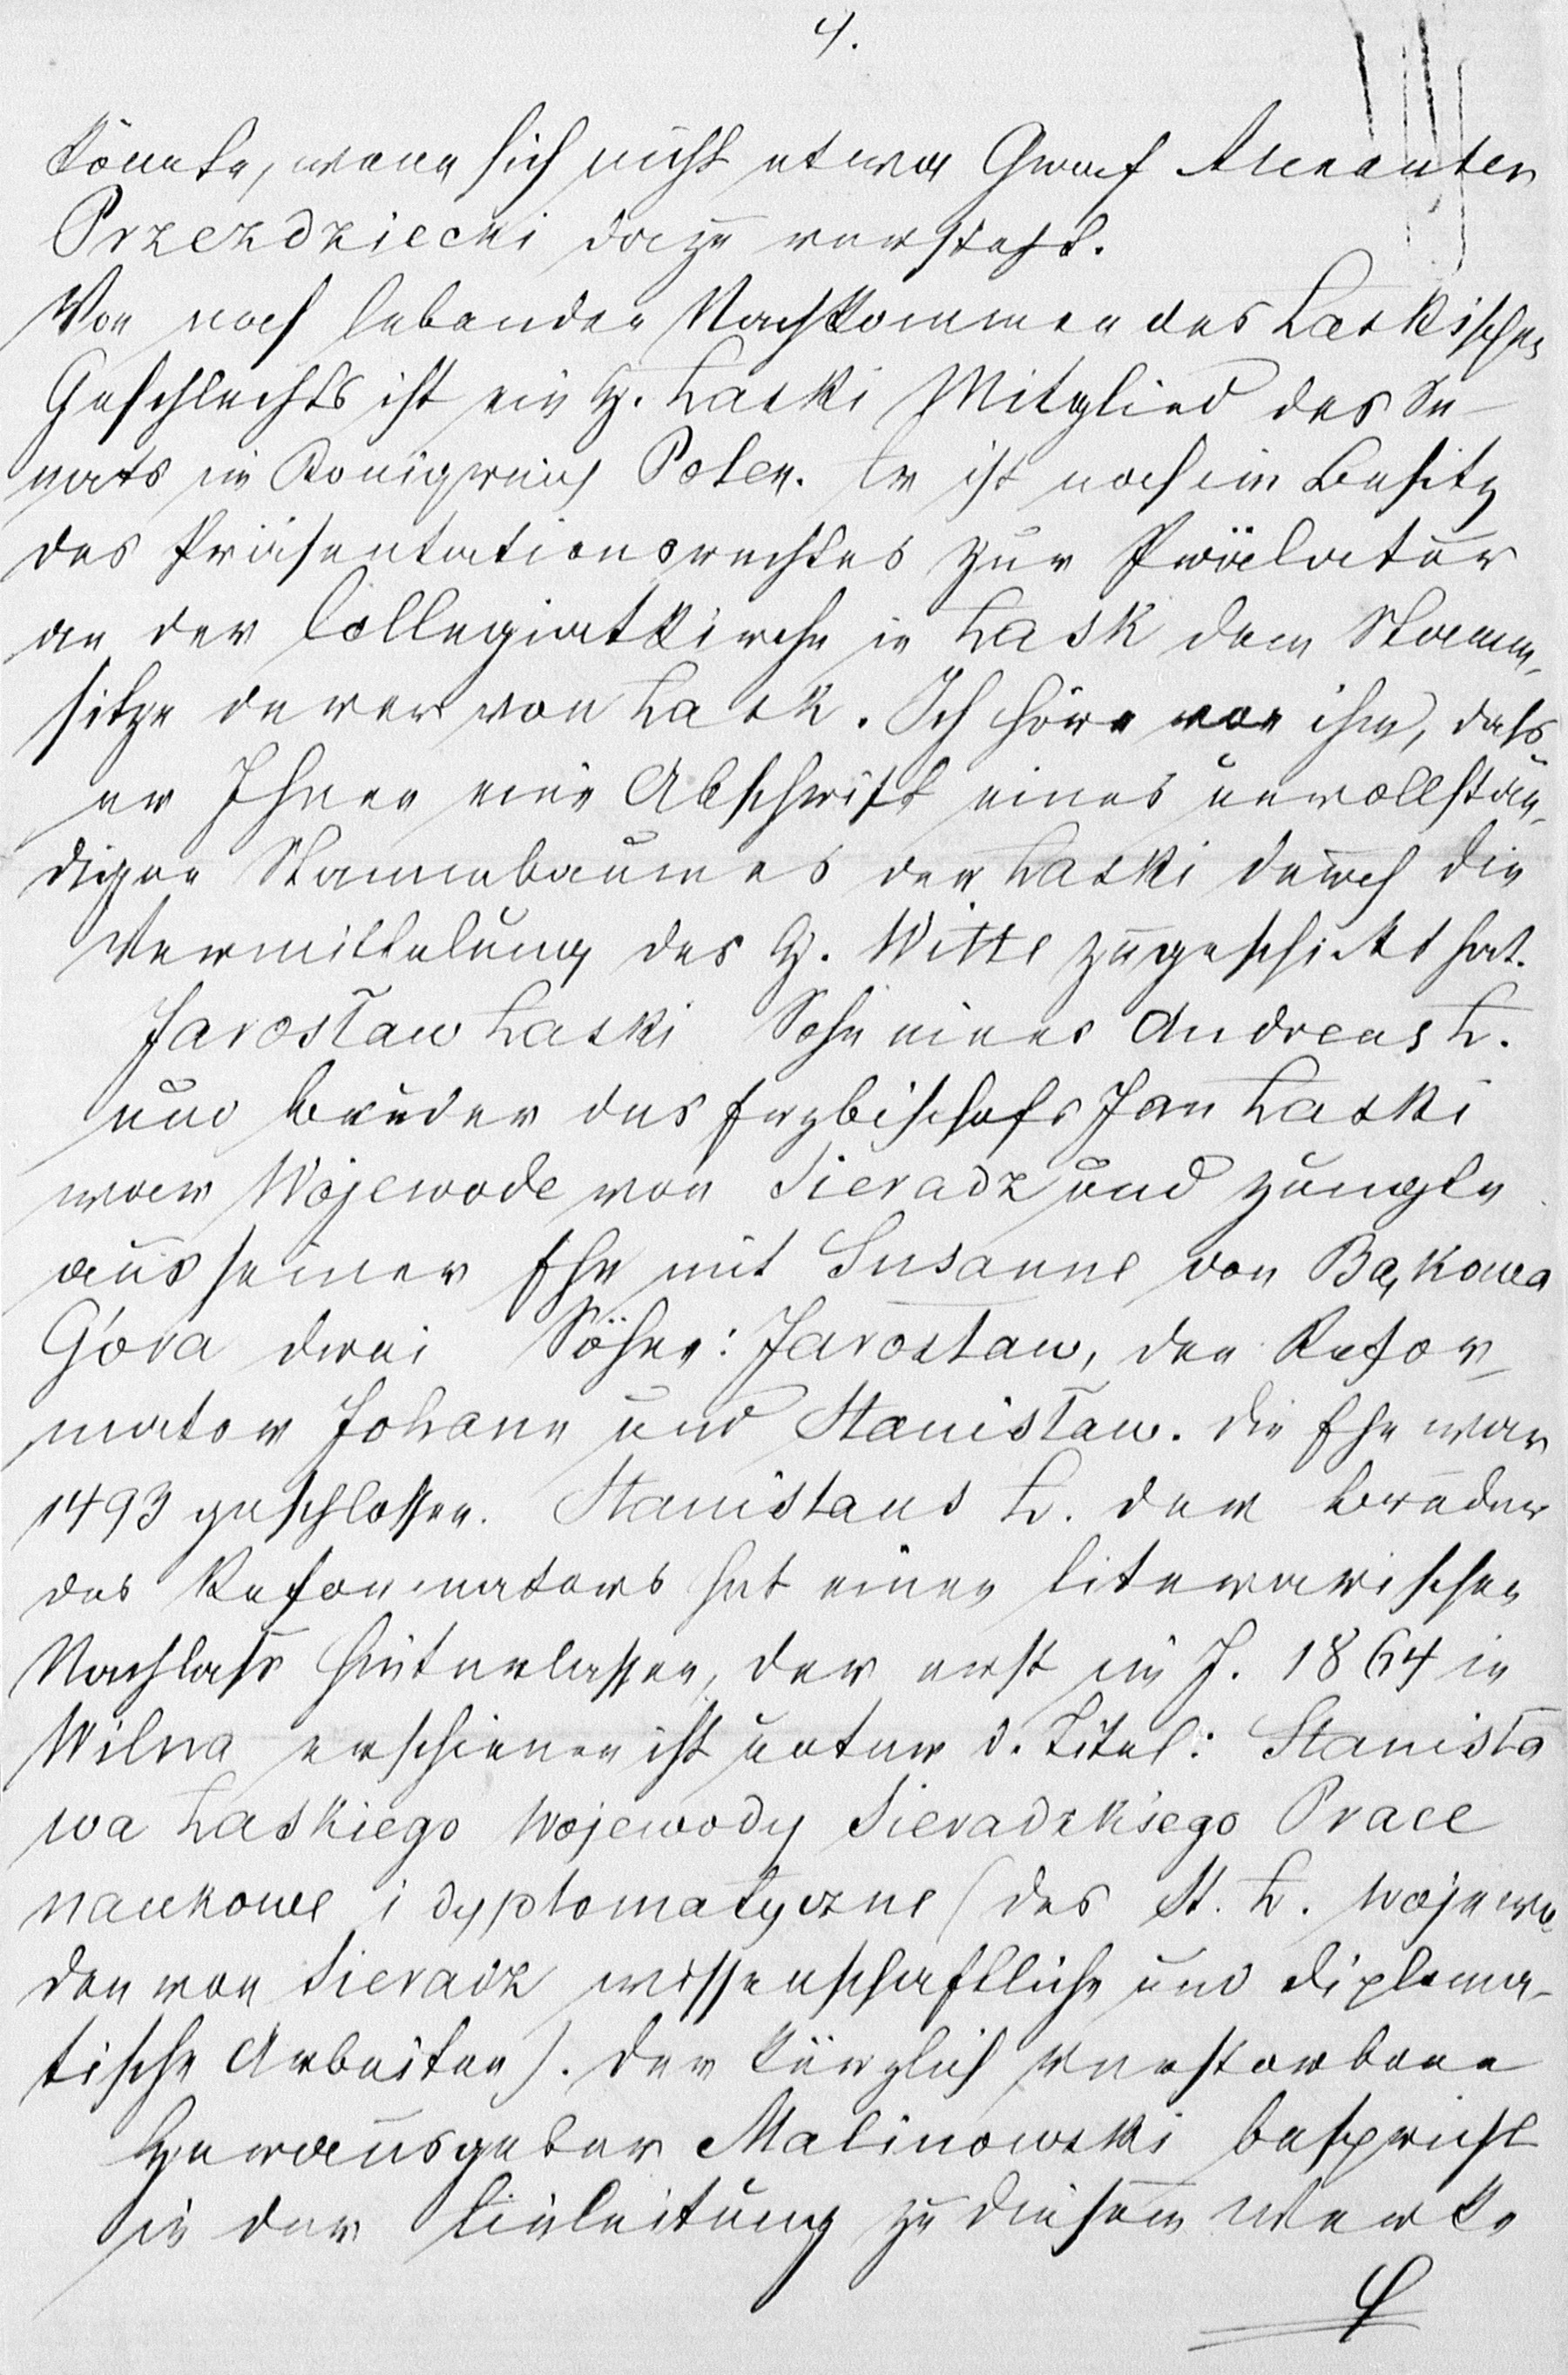 4.
könnte, wenn sich nicht etwa Graf Alexander
Przezdziecki dazu versteht.
Von noch lebenden Nachkommen des Łaskischen
Geschlechts ist ein H. Łaski Mitglied des Se-
nats im Königreich Polen. Er ist noch im Besitz
des Präsentationsrechtes zur Prälatur
an der Collegiatkirche in Łask dem Stamm-
sitze derer von Łask. Ich höre von ihm, dass
er Ihnen eine Abschrift eines unvollstän-
digen Stammbaumes der Łaski durch die
Vermittelung des H. Witte zugeschickt hat.
Jarosław Łaski Sohn eines Andreas Ł.
und Bruder des Erzbischofs Jan Łaski
war Wojewode von Sieradz und zeugte
aus seiner Ehe mit Susanne von Bąkowa
Góra drei Söhne: Jarosław, den Refor-
mator Johann und Stanisław. Die Ehe war
1493 geschlossen. Stanislaus Ł. der Bruder
des Reformators hat einen literarischen
Nachlass hinterlassen, der erst im J. 1864 in
Wilna erschienen ist unter d. Titel: Stanisła
wa Łaskiego Wojewody Sieradzkiego Prace
naukowe i dyplomatyczne (des St. Ł. Wojewo-
den von Sieradz wissenschaftliche und diploma-
tische Arbeiten). Der kürzlich verstorbene
Herausgeber Malinowski bespricht
in der Einleitung zu diesem Werke